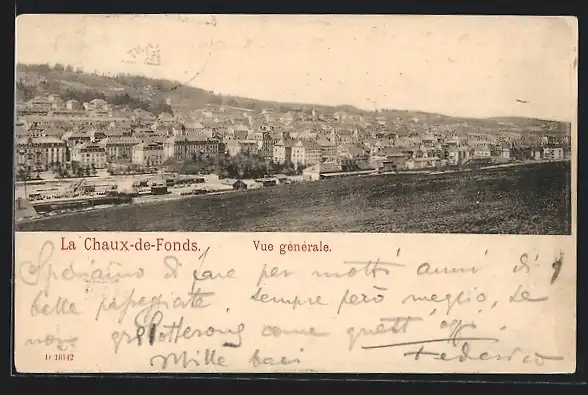 La Chaux-de-Fonds. Vue générale.
Speriamo di fare per molti anni di
belle passegiate, sempre però meglio, se
non come quest' oggi.
Mille baci Federico
D 10142